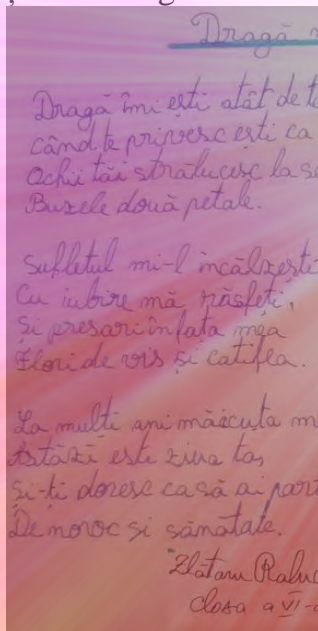 Dragă
Dragă îmi ești atât de
când te privesc ești ca
Ochii tăi strălucesc la
Buzele două petale.
Sufletul mi-l încălzești
Cu iubire mă răsfeți,
Și presari în fața mea
Flori de vis și catifea.
La mulți ani măicuța
Astăzi este ziua ta,
Și-ți doresc ca să ai
De noroc și sănătate.
Zlătaru
Clasa a VI-a